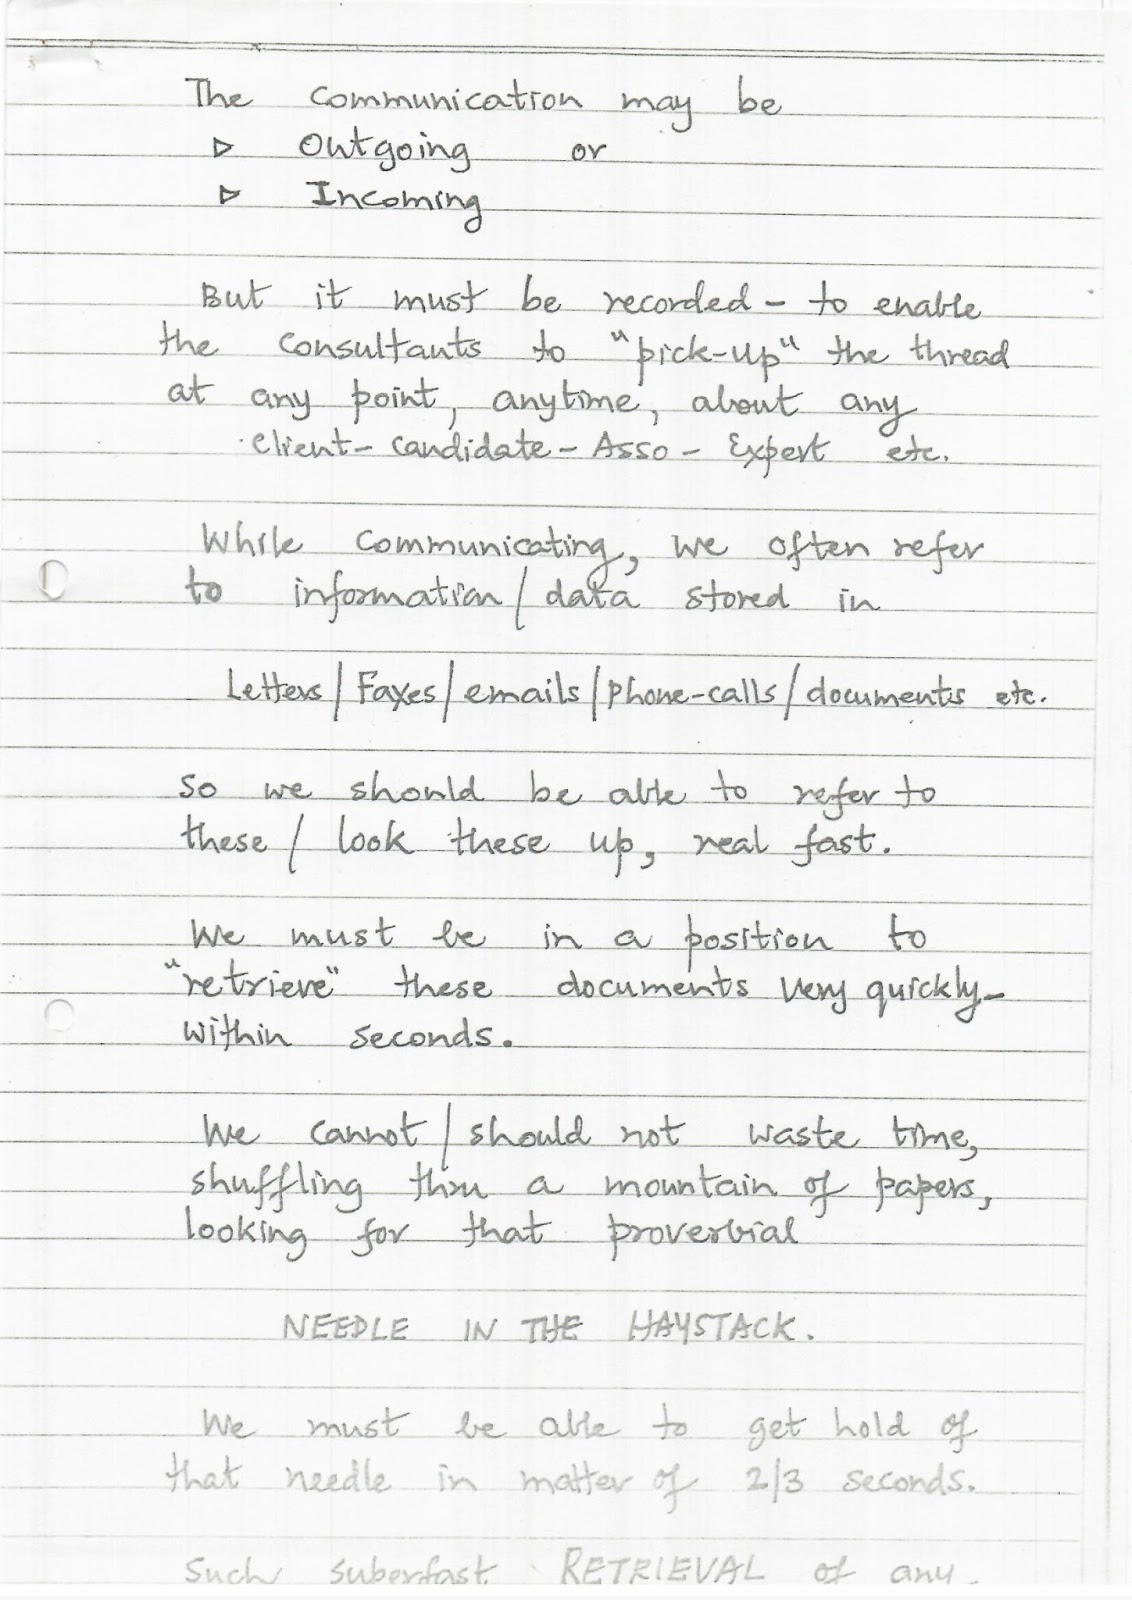 The communication may be
▷ Outgoing or
▷ Incoming
But it must be recorded - to enable
the consultants to "pick-up" the thread
at any point, anytime, about any
client - candidate - Asso - Expert etc.
While communicating, we often refer
to information / data stored in
Letters / Faxes / emails / phone-calls / documents etc.
So we should be able to refer to
these / look these up, real fast.
We must be in a position to
"retrieve" these documents very quickly -
within seconds.
We cannot / should not waste time,
shuffling thru a mountain of papers,
looking for that proverbial
NEEDLE IN THE HAYSTACK.
We must be able to get hold of
that needle in matter of 2/3 seconds.
Such superfast RETRIEVAL of any